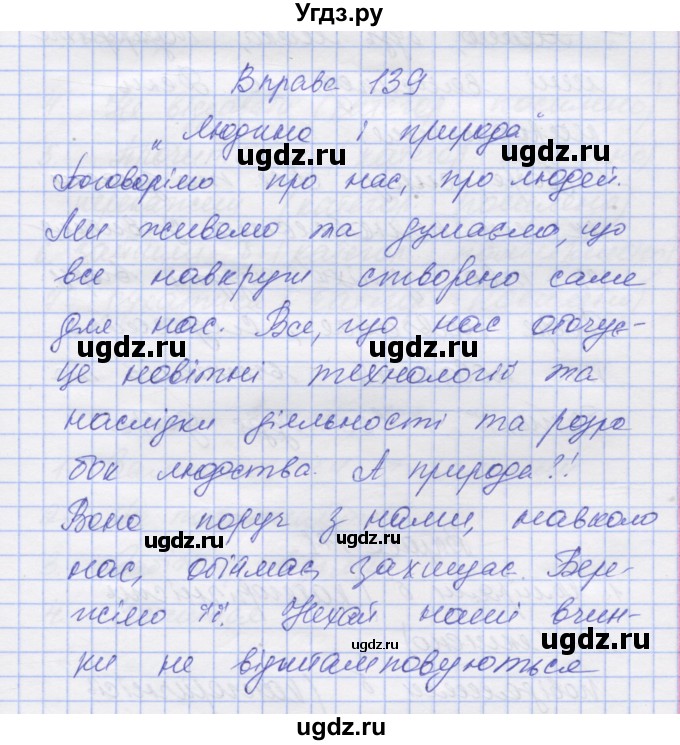 Угдз.ру
Вправа 139
„Людина і природа"
Поговорімо про нас, про людей.
Ми живемо та думаємо, що
все навкруги створено саме
для нас. Все, що нас оточує-
це новітні технології та
наслідки діяльності та розро
бок людства. А природа?!
Вона поруч з нами, навколо
нас, обіймає, захищає. Бер-
жімо її! Нехай наші вчин-
ки не відштамповуються
ugdz.ru ugdz.ru
ugdz.ru ugdz.ru
ugdz.ru ugdz.ru
ugdz.ru ugdz.ru
ugdz.ru
ugdz.ru